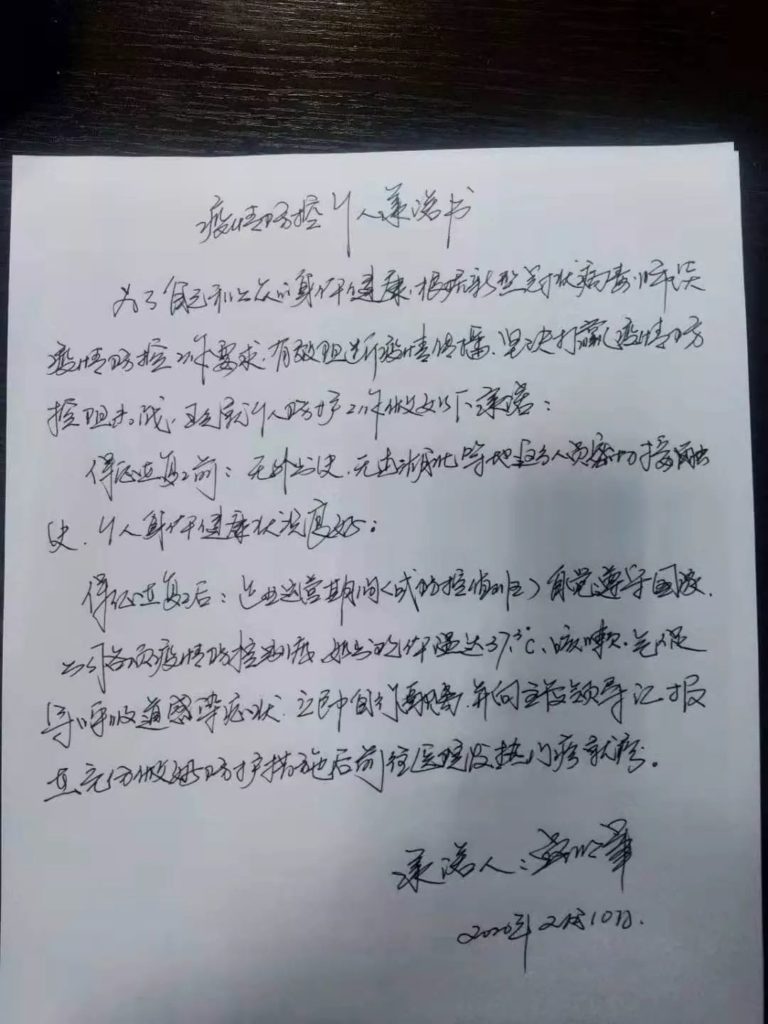 疫情防控个人承诺书
为了自己和公众的身体健康,根据新型冠状病毒肺炎
疫情防控工作要求,有效阻断疫情传播,坚决打赢疫情防
控阻击战,现就个人防护工作做如以下承诺:
保证在复工前:无外出史、无去湖北等地且与人员密切接触
史,个人身体健康状况良好;
保证在复工后:企业运营期间(或防控值班)自觉遵守国家、
公司各项疫情防控制度,如出现体温达37.3℃、咳嗽、气促
等呼吸道感染症状,立即自行隔离,并向主管领导汇报
且充分做好防护措施后前往医院发热门诊就诊。
承诺人:
2020年2月10日.